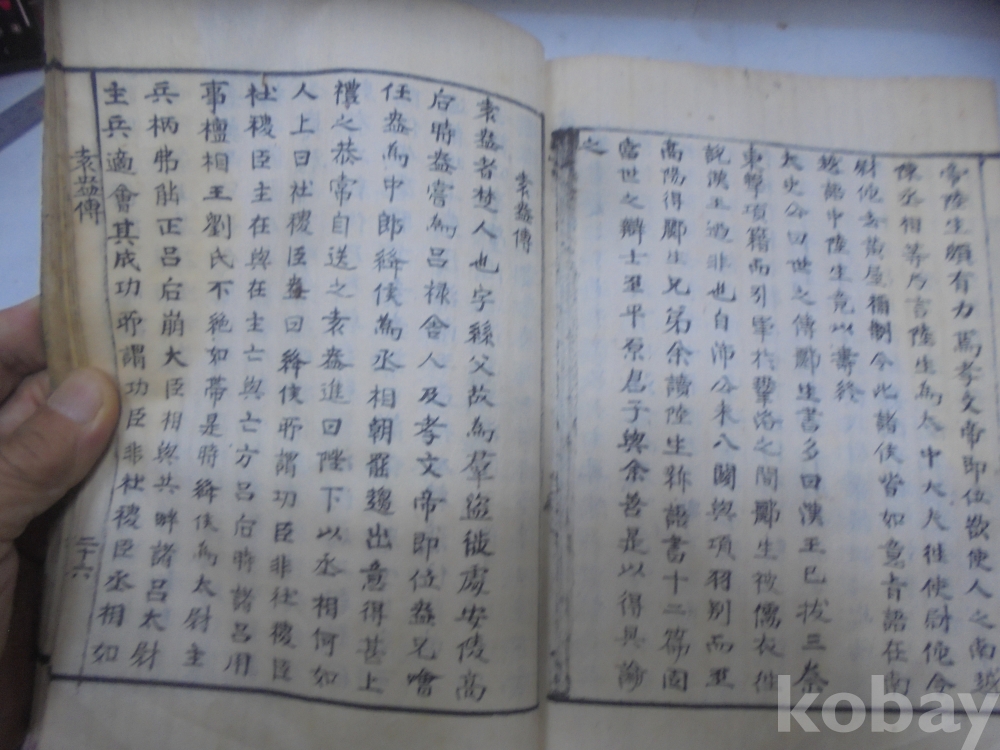 帝陸生頗有力焉孝文帝即位欲使人之南越
陳丞相等乃言陸生為太中大夫往使尉佗令
尉佗去黃屋稱制令比諸侯皆如意旨語在南
越語中陸生竟以壽終
太史公曰世之傳酈生書多曰漢王已拔三秦
東擊項籍而引軍於鞏洛之間酈生被儒衣往
說漢王迺非也自沛公未入關與項羽別而至
高陽得酈生兄弟余讀陸生新語書十二篇固
當世之辯士至平原君子與余善是以得具論
之
袁盎傳
袁盎者楚人也字絲父故為羣盜徙處安陵高
后時盎嘗為呂祿舍人及孝文帝即位盎兄噲
任盎為中郎絳侯為丞相朝罷趨出意得甚上
禮之恭常自送之袁盎進曰陛下以丞相何如
人上曰社稷臣盎曰絳侯所謂功臣非社稷臣
社稷臣主在與在主亡與亡方呂后時諸呂用
事擅相王劉氏不絶如帶是時絳侯為太尉主
兵柄弗能正呂后崩大臣相與共畔諸呂太尉
主兵適會其成功所謂功臣非社稷臣丞相如
袁盎傳
二十六
kobay